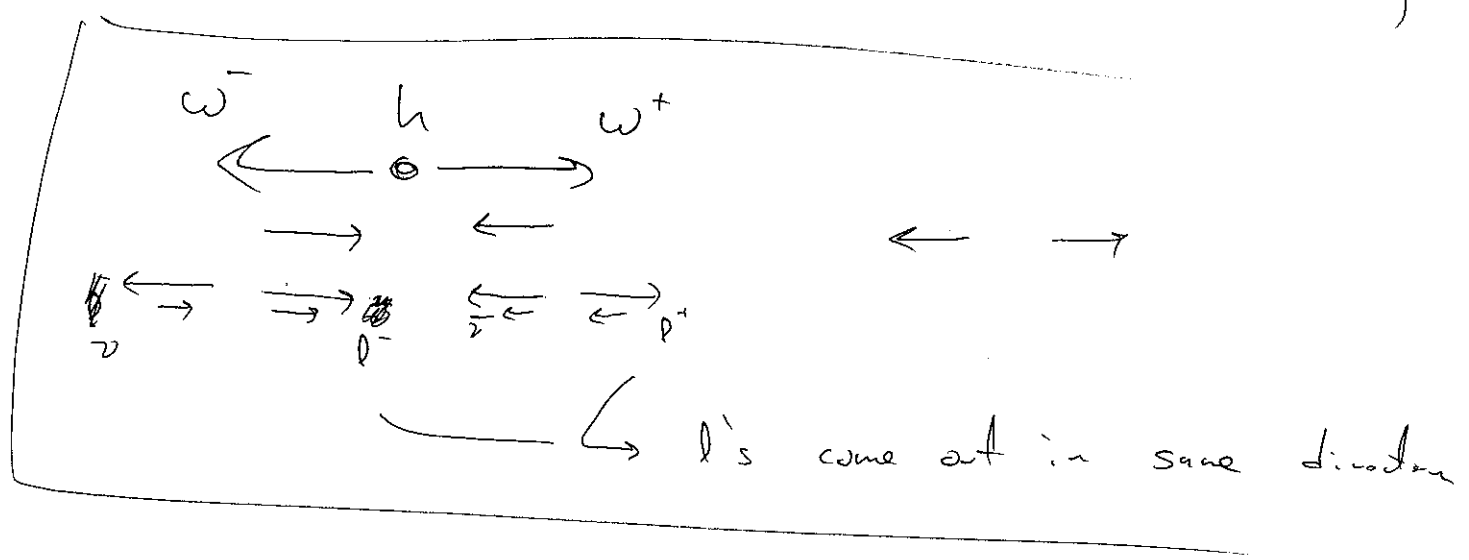 ω⁻ h ω⁺
ν l⁻ ν̄ l⁺
l's come out in same direction